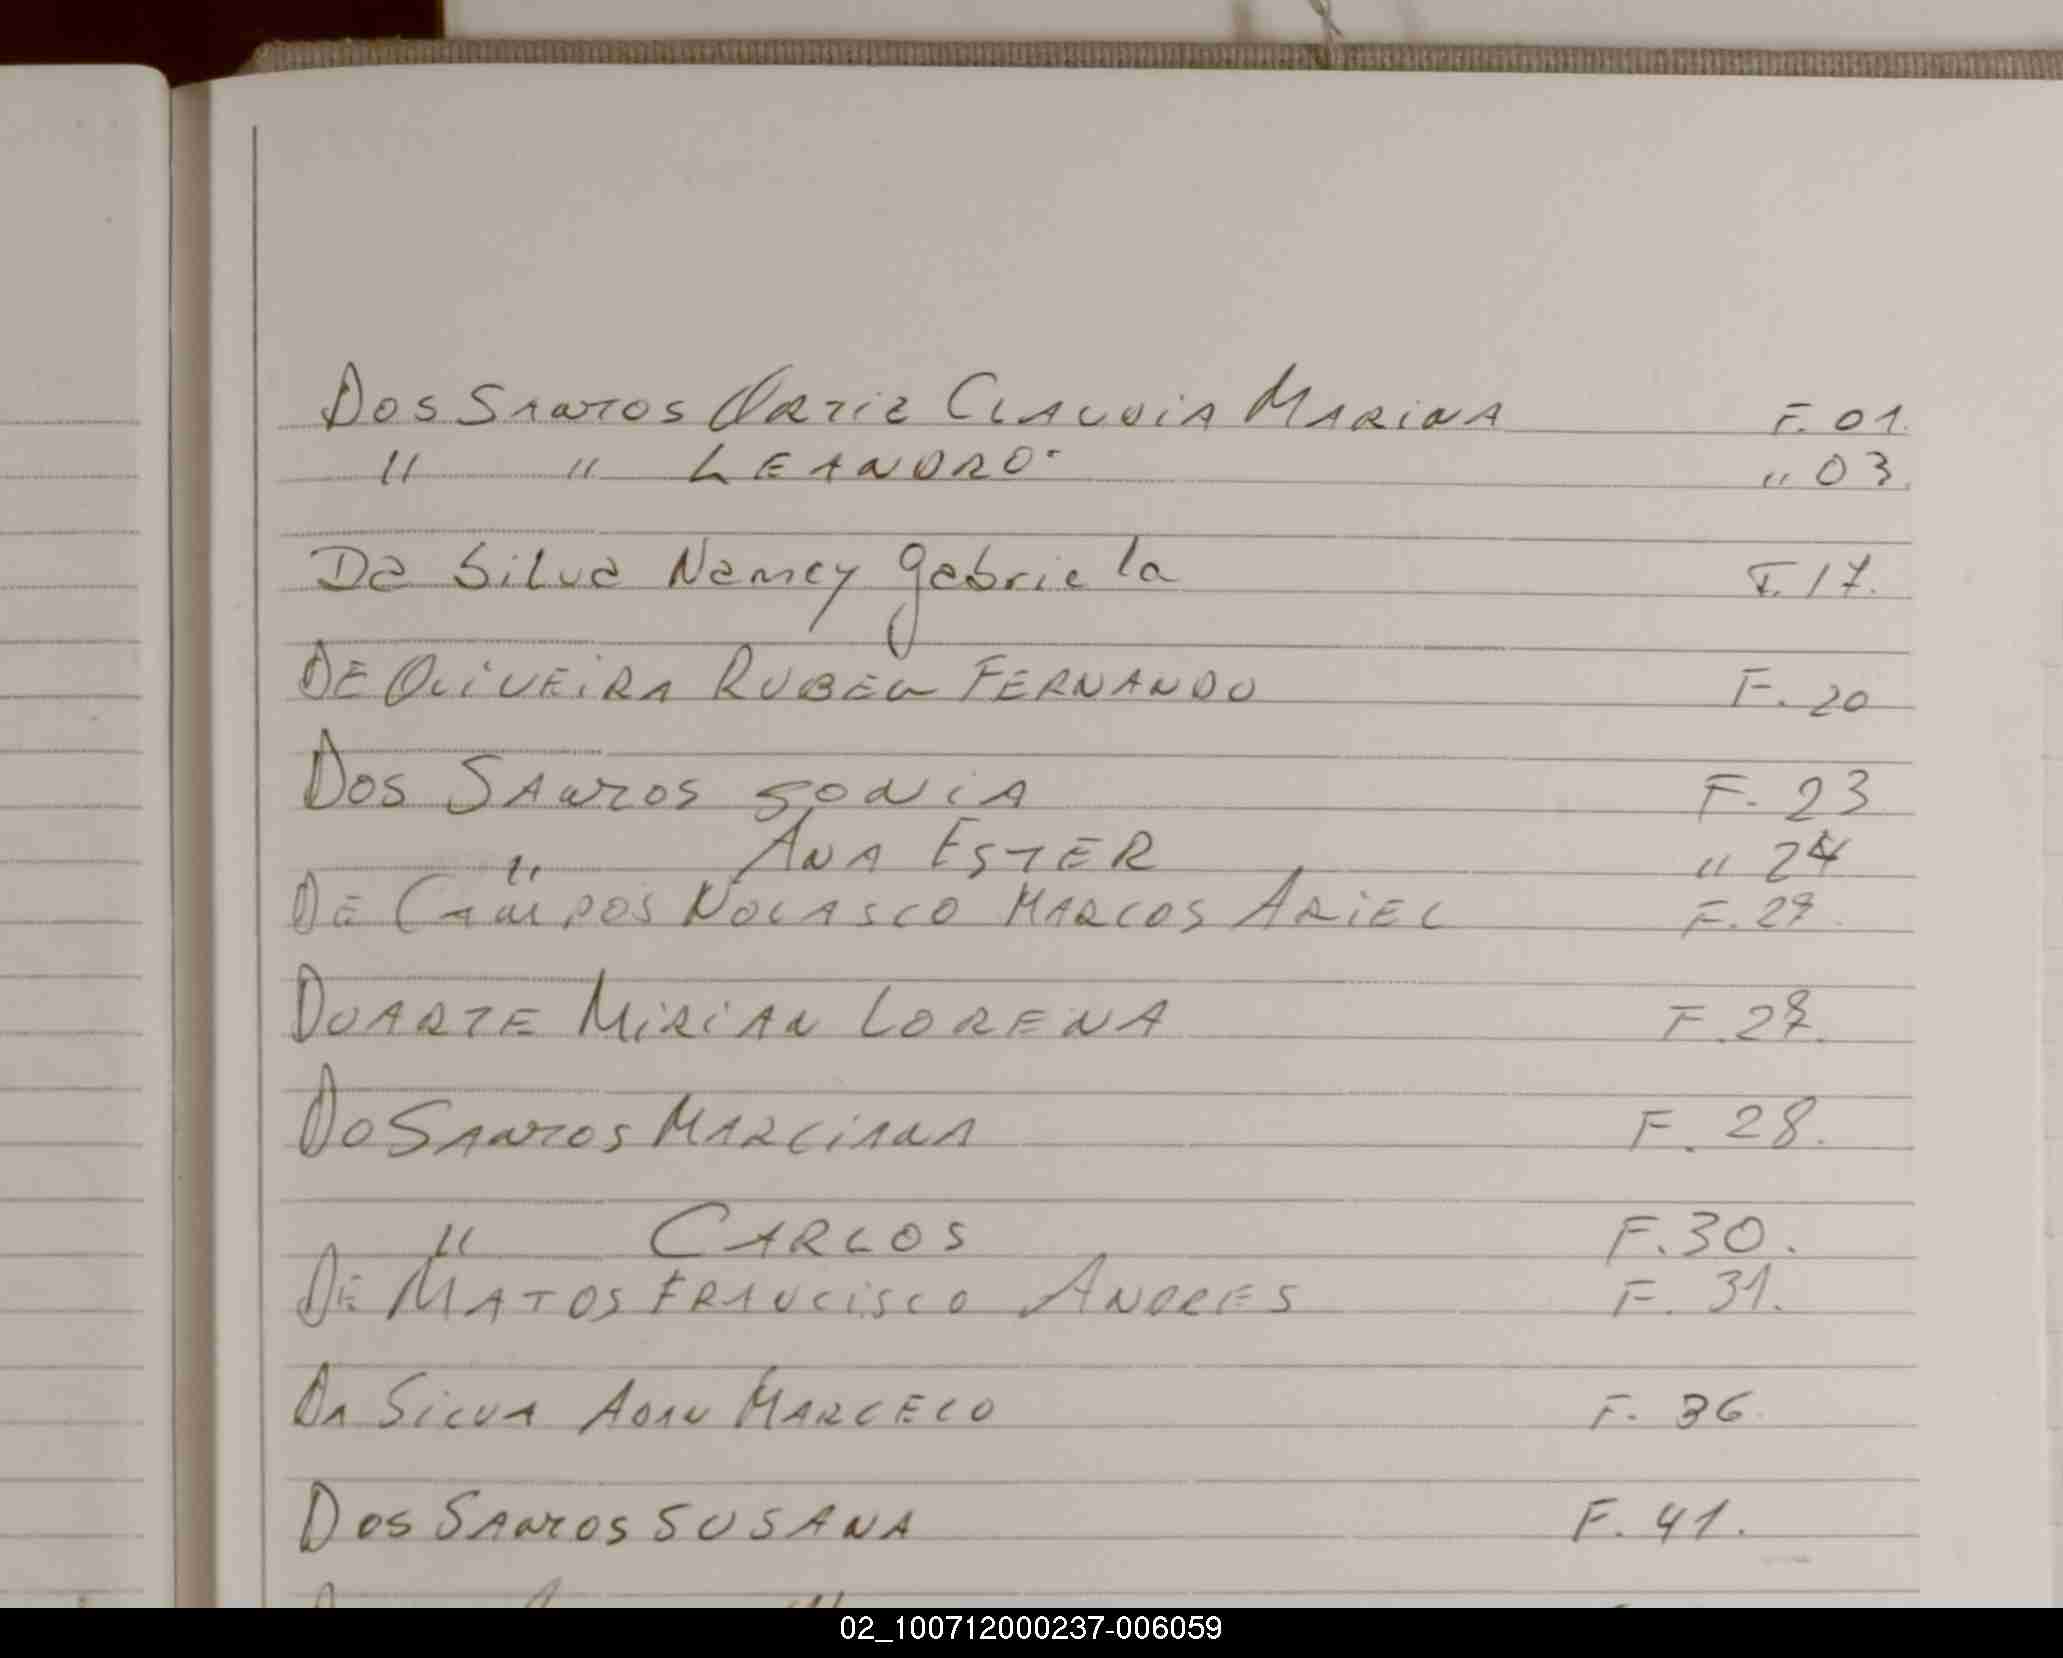 Dos Santos Ortiz Claudia Marina F. 01.
" " Leandro. " 03.
Da Silva Nancy Gabriela F. 17.
De Oliveira Ruben Fernando F. 20
Dos Santos Sonia F. 23
" Ana Ester " 24
De Campos Nolasco Marcos Ariel F.
Duarte Mirian Lorena F.
Do Santos Marciana F. 28.
" Carlos F. 30.
De Matos Francisco Andres F. 31.
Da Silva Adan Marcelo F. 36.
Dos Santos Susana F. 41.
02_100712000237-006059